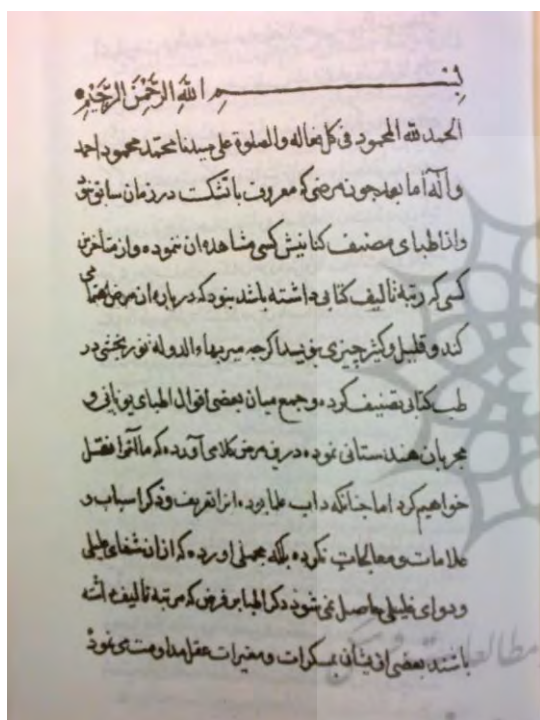 بسم الله الرحمن الرحیم
الحمد لله المحمود فی کل فعاله والصلوة علی سیدنا محمد محمود احمد
وآله اما بعد چون مرضی که معروف باتشکت در زمان سابق نبود
واز اطبای مصنف کتابیش کسی مشاهده ان ننموده واز متأخرین
کسی که رتبه تألیف کتابی داشته باشد نبود که درباره ان مرض اهتمامی
کند و قلیل و کثیر چیزی بنویسد اکرچه میر بهاءالدوله نوربخشی در
طب کتابی تصنیف کرده و جمع میان بعضی اقوال اطبای یونانی و
مجربان هندستانی نموده درین مرض کلامی آورده که ما آنرا نقل
خواهیم کرد اما چنانکه داب علما بوده از تعریف و ذکر اسباب و
علامات و معالجات نکرده بلکه مجملی اورده که ازان شفای علیلی
ودوای غلیلی حاصل نمی شود دکر اطبا بر فرض که مرتبه تألیف داشته
باشند بعضی از یشان بمسکرات و مغیرات عقل مداومت می نمود
مطالعات